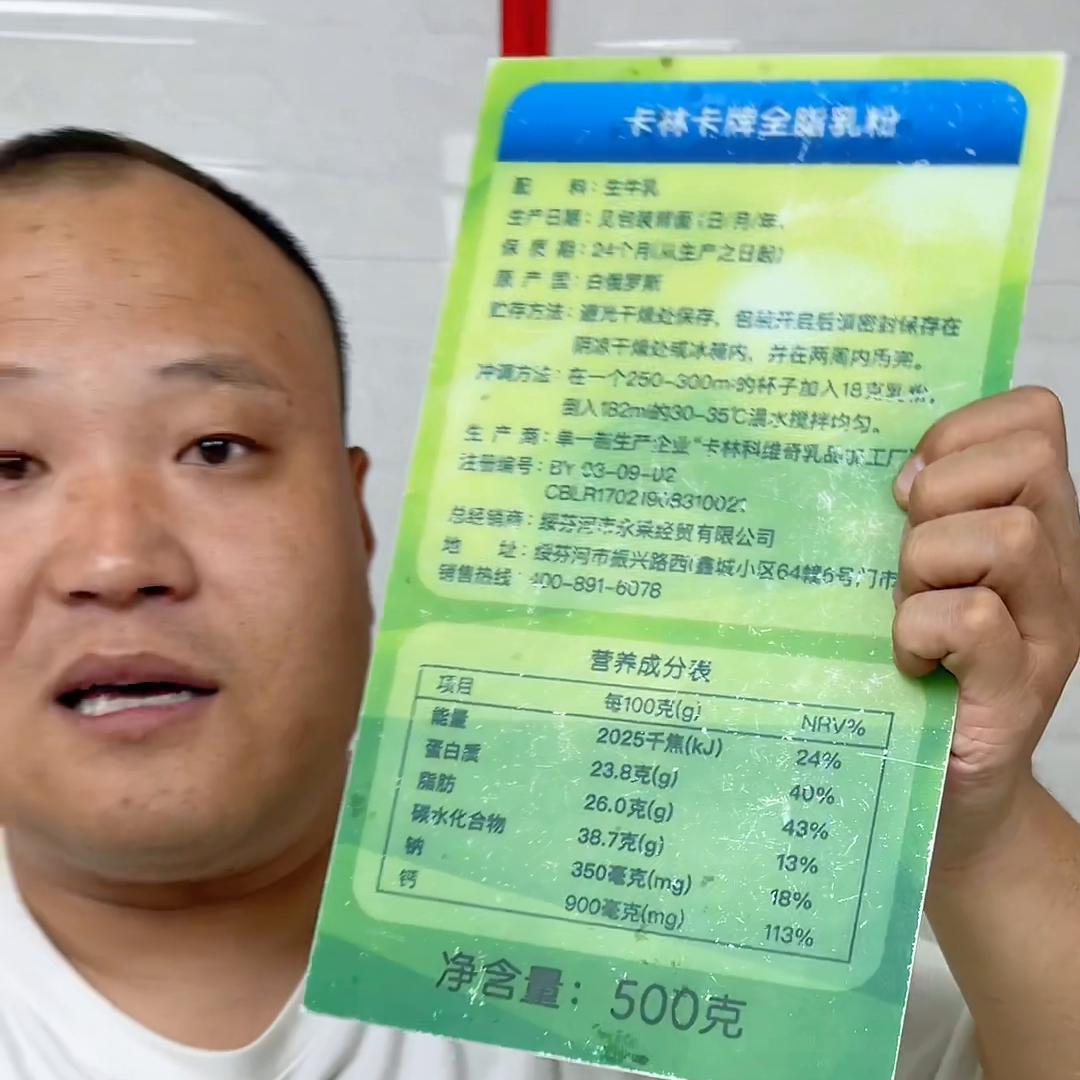 卡林卡牌全脂乳粉
配 料：生牛乳
生产日期：见包装背面（日/月/年）
保 质 期：24个月(从生产之日起)
原 产 国：白俄罗斯
贮存方法：避光干燥处保存，包装开启后须密封保存在
阴凉干燥处或冰箱内，并在两周内用完。
冲调方法：在一个250-300ml的杯子加入18克乳粉，
倒入182ml的30-35℃温水搅拌均匀。
生 产 商：单一制生产企业“卡林科维奇乳品加工厂”
注册编号：BY 03-09-02
总经销商：绥芬河市永采经贸有限公司
地 址：绥芬河市振兴路西(鑫城小区64幢6号门市
销售热线：400-891-6078
营养成分表
项目 每100克(g) NRV%
能量 2025千焦(kJ) 24%
蛋白质 23.8克(g) 40%
脂肪 26.0克(g) 43%
碳水化合物 38.7克(g) 13%
钠 350毫克(mg) 18%
钙 900毫克(mg) 113%
净含量：500克